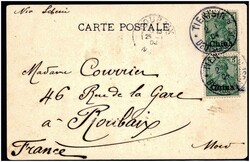 Via Sibérie
CARTE POSTALE
TIENTSIN
China
China
Madame Courrier
46 Rue de la Gare
à Roubaix
France
Nord